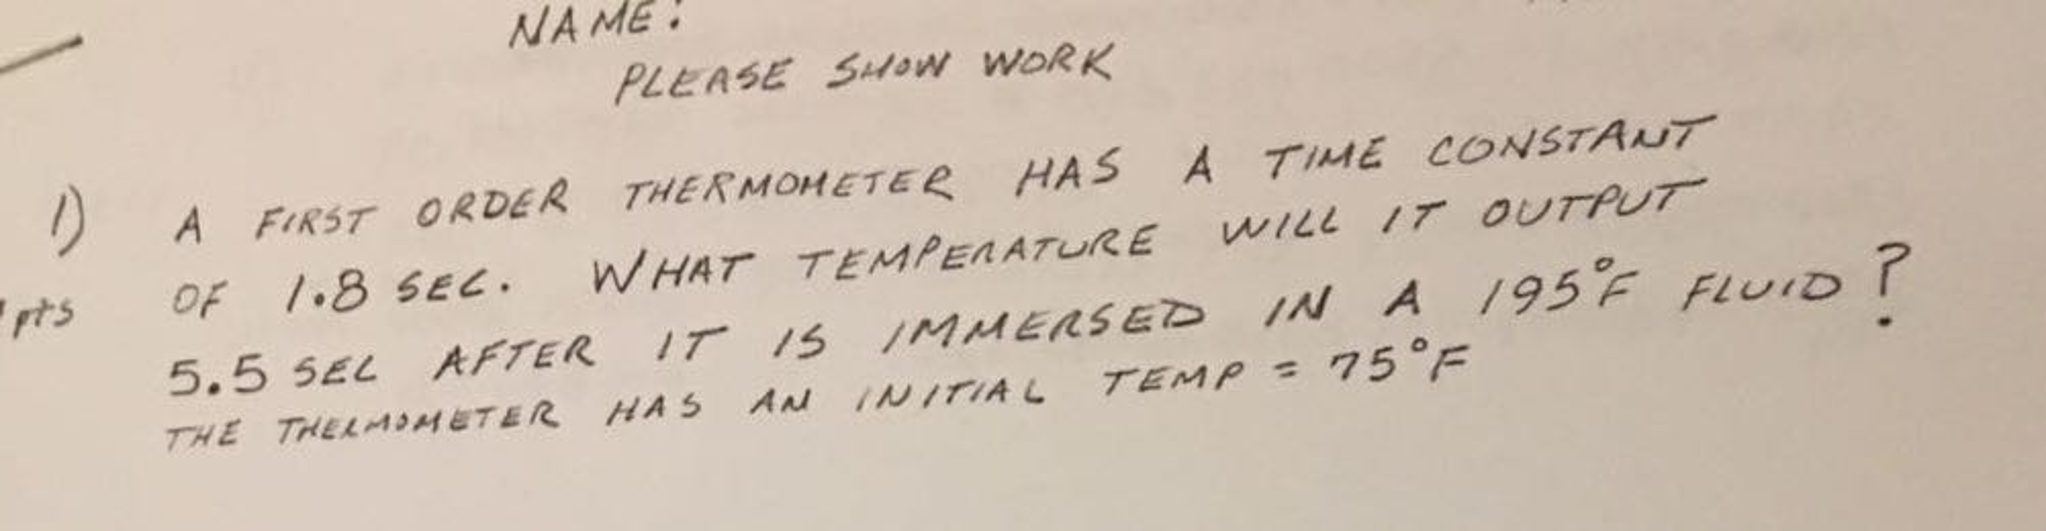 NAME:
PLEASE SHOW WORK
1) A FIRST ORDER THERMOMETER HAS A TIME CONSTANT
OF 1.8 SEC. WHAT TEMPERATURE WILL IT OUTPUT
pts
5.5 SEC AFTER IT IS IMMERSED IN A 195°F FLUID?
THE THERMOMETER HAS AN INITIAL TEMP = 75°F